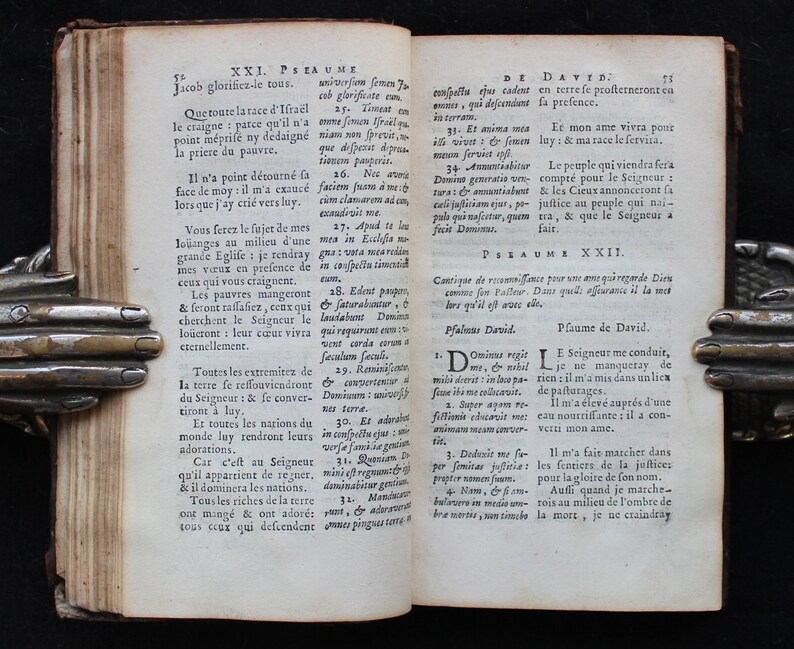 52 XXI. PSEAUME
Jacob glorifiez-le tous.
Que toute la race d'Israël
le craigne : parce qu'il n'a
point méprisé ny dédaigné
la priere du pauvre.
Il n'a point détourné sa
face de moy : il m'a exaucé
lors que j'ay crié vers luy.
Vous serez le sujet de mes
loüanges au milieu d'une
grande Eglise : je rendray
mes vœux en presence de
ceux qui vous craignent.
Les pauvres mangeront
& seront rassasiez, ceux qui
cherchent le Seigneur le
loüeront : leur cœur vivra
eternellement.
Toutes les extremitez de
la terre se ressouviendront
du Seigneur : & se conver-
tiront à luy.
Et toutes les nations du
monde luy rendront leurs
adorations.
Car c'est au Seigneur
qu'il appartient de regner,
& il dominera les nations.
Tous les riches de la terre
ont mangé & ont adoré:
tous ceux qui descendent
universum semen Ja-
cob glorificate eum.
25. Timeat eum
omne semen Israël quo-
niam non sprevit, ne-
que despexit depreca-
tionem pauperis.
26. Nec averit
faciem suam à me : &
cum clamarem ad eum
exaudivit me.
27. Apud te laus
mea in Ecclesia ma-
gna : vota mea reddam
in conspectu timentium
eum.
28. Edent pauperes,
& saturabuntur, &
laudabunt Dominum
qui requirunt eum : vi-
vent corda eorum in
sæculum sæculi.
29. Reminiscentur,
& convertentur ad
Dominum : universi fi-
nes terræ.
30. Et adorabunt
in conspectu ejus : uni-
versæ familiæ gentium.
31. Quoniam Do-
mini est regnum : & ipse
dominabitur gentium.
32. Manducave-
runt, & adoraverunt
omnes pingues terræ: in
DE DAVID. 53
conspectu ejus cadent
omnes, qui descendunt
in terram.
33. Et anima mea
illi vivet : & semen
meum serviet ipsi.
34. Annuntiabitur
Domino generatio ven-
tura : & annuntiabunt
cæli justitiam ejus, po-
pulo qui nascetur, quem
fecit Dominus.
en terre se prosterneront en
sa presence.
Et mon ame vivra pour
luy : & ma race le servira.
Le peuple qui viendra sera
compté pour le Seigneur :
& les Cieux annonceront sa
justice au peuple qui naî-
tra, & que le Seigneur a
fait.
PSEAUME XXII.
Cantique de reconnoissance pour une ame qui regarde Dieu
comme son Pasteur. Dans quelle asseurance il la met
lors qu'il est avec elle.
Psalmus David.
1. Dominus regit
me, & nihil
mihi deerit : in loco pa-
scuæ ibi me collocavit.
2. Super aqam re-
fectionis educavit me:
animam meam conver-
tit.
3. Deduxit me su-
per semitas justitiæ :
propter nomen suum.
4. Nam, & si am-
bulavero in medio um-
bræ mortis, non timebo
Pseaume de David.
LE Seigneur me conduit,
je ne manqueray de
rien : il m'a mis dans un lieu
de pasturages.
Il m'a élevé auprés d'une
eau nourrissante : il a con-
verti mon ame.
Il m'a fait marcher dans
les sentiers de la justice:
pour la gloire de son nom.
Aussi quand je marche-
rois au milieu de l'ombre de
la mort, je ne craindray